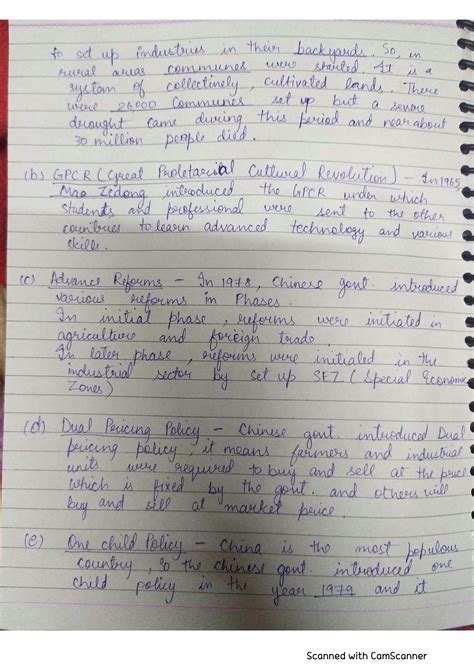 to set up industries in their backyards. So, in
rural areas communes were started. It is a
system of collectively, cultivated lands. There
were 26000 Communes set up but a severe
drought came during this period and near about
30 million people died.
(b) GPCR (Great Proletarial Cultural Revolution) – In 1965,
Mao Zedong introduced the GPCR under which
students and professional were sent to the other
countries to learn advanced technology and various
skills.
(c) Advance Reforms – In 1978, Chinese govt. introduced
various reforms in Phases.
In initial phase, reforms were initiated in
agriculture and foreign trade.
In later phase, reforms were initiated in the
industrial sector by set up SEZ (Special Economic
Zones)
(d) Dual Pricing Policy – Chinese govt. introduced Dual
pricing policy, it means farmers and industrial
units were required to buy and sell at the price
which is fixed by the govt. and others will
buy and sell at market price.
(e) One child Policy – China is the most populous
country, so the chinese govt. introduced one
child policy in the year 1979 and it
Scanned with CamScanner